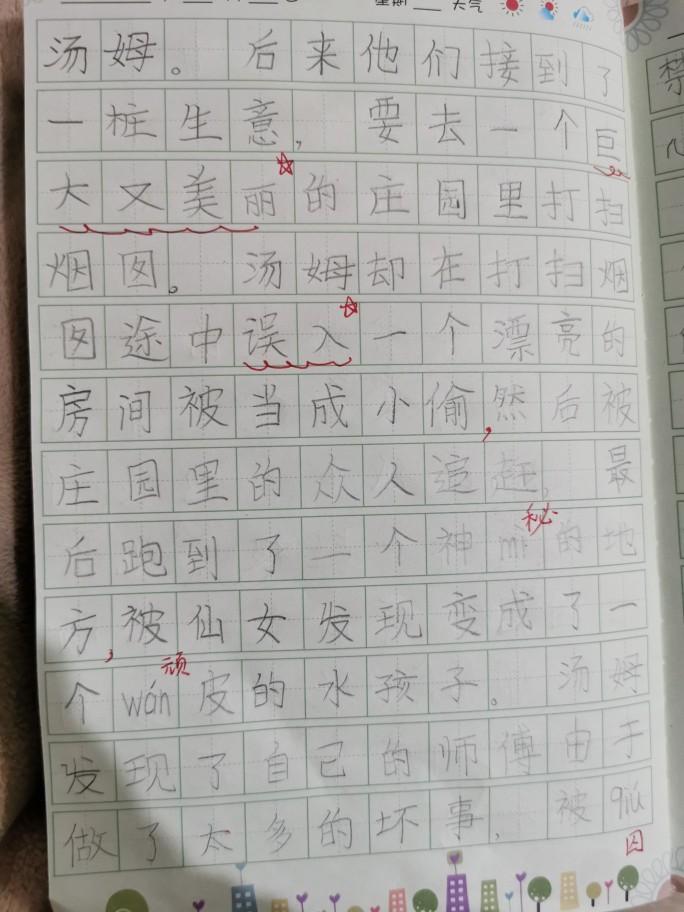 星期 天气
汤姆。后来他们接到了
一桩生意,要去一个巨
大又美丽的庄园里打扫
烟囱。汤姆却在打扫烟
囱途中误入一个漂亮的
房间被当成小偷,然后被
庄园里的众人追赶。最
后跑到了一个神mì的地
秘
方,被仙女发现变成了一
顽
个wán皮的水孩子。汤姆
发现了自己的师傅由于
做了太多的坏事,被qiú
囚
禁